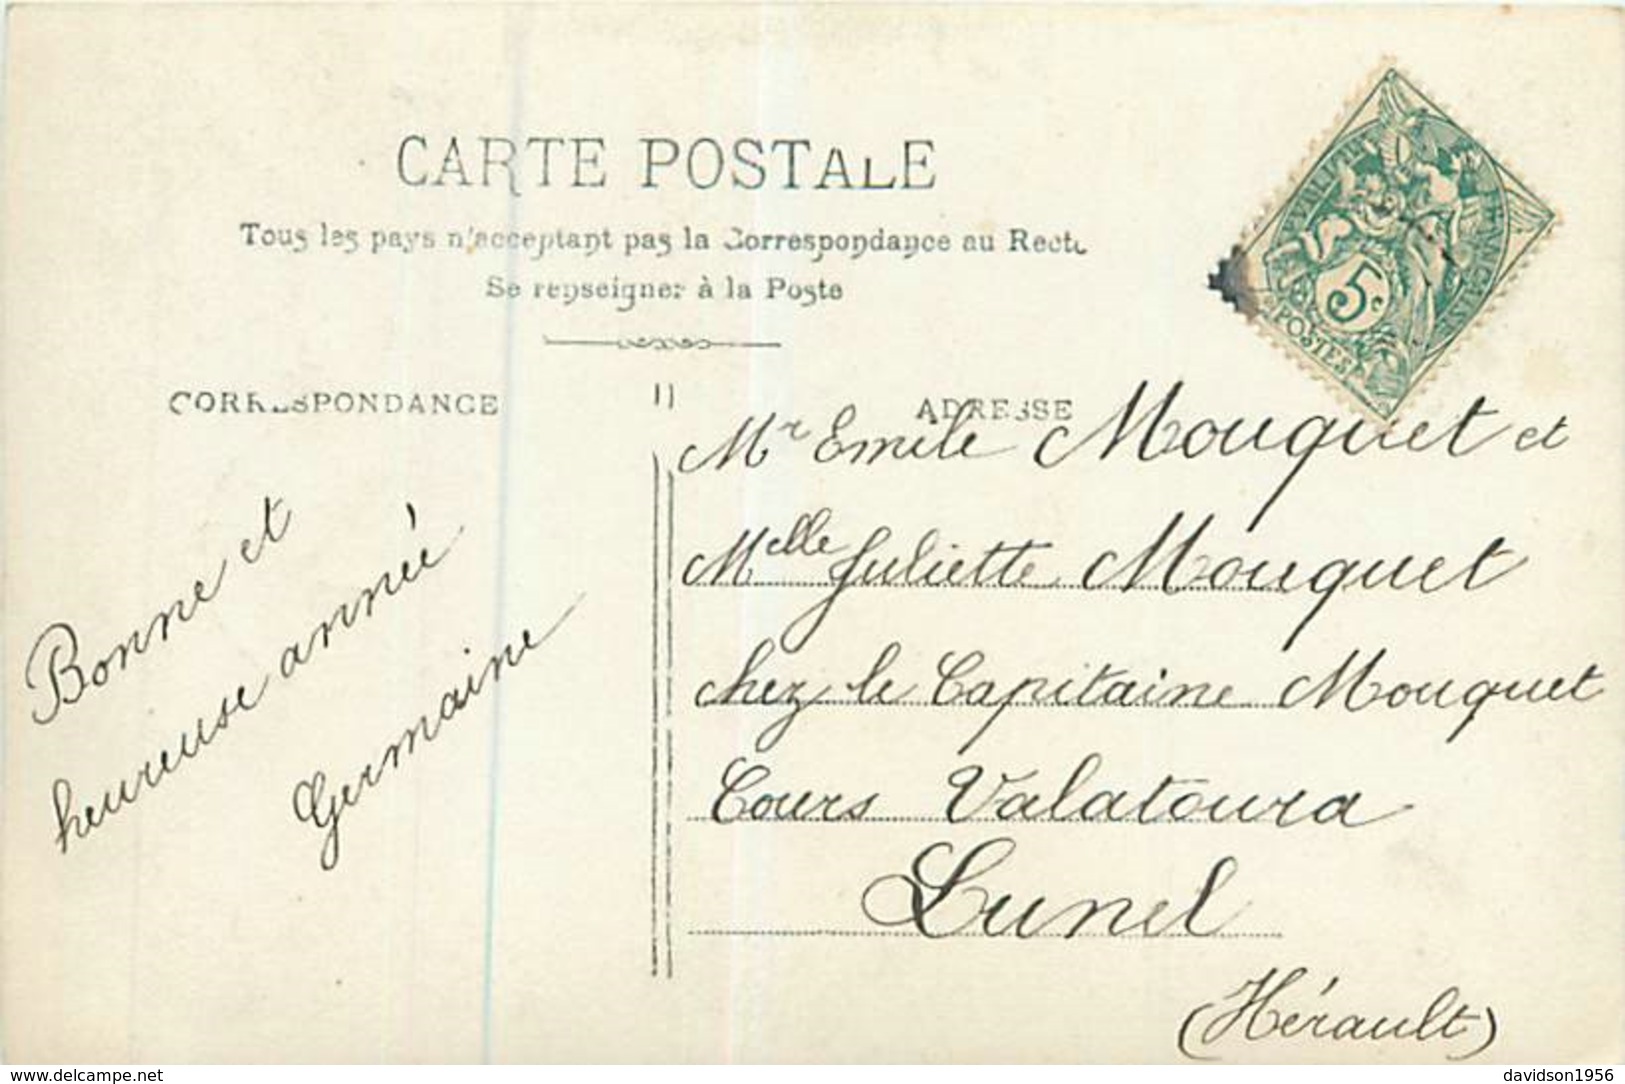 CARTE POSTALE
Tous les pays n'acceptant pas la Correspondance au Recto
Se renseigner à la Poste
CORRESPONDANCE
ADRESSE
5c.
POSTES
Bonne et
heureuse année
Germaine
Mr Emile Mouquet et
Melle Juliette Mouquet
chez le Capitaine Mouquet
Cours Valatoura
Lunel
(Hérault)
www.delcampe.net
davidson1956